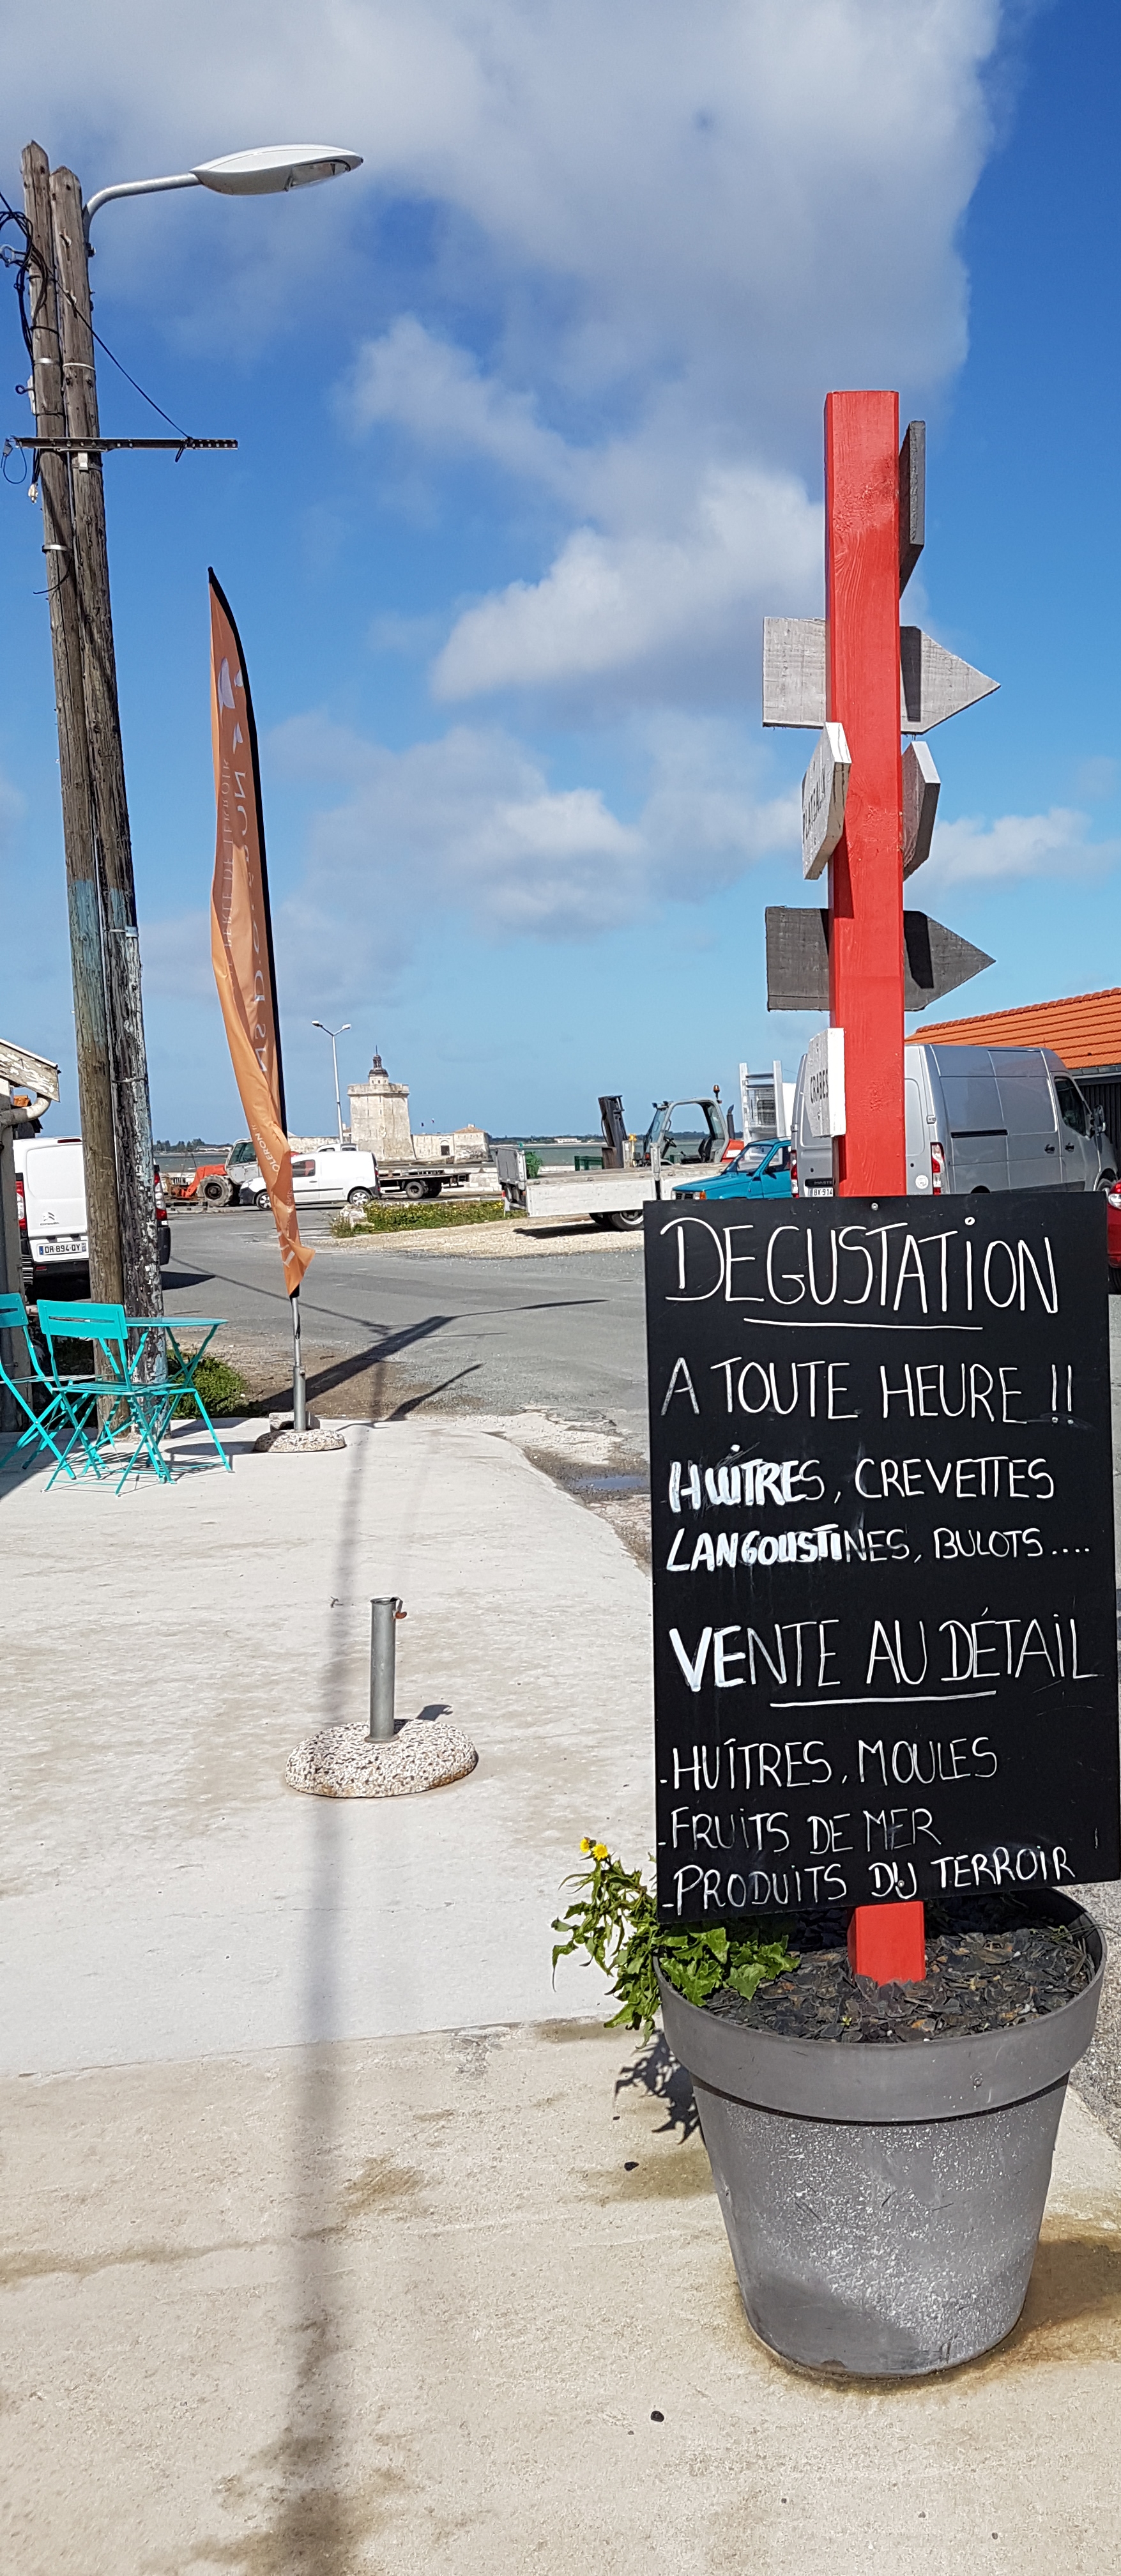 DEGUSTATION
A TOUTE HEURE !!
HUITRES, CREVETTES
LANGOUSTINES, BULOTS....
VENTE AU DÉTAIL
-HUÎTRES, MOULES
-FRUITS DE MER
-PRODUITS DU TERROIR
DR 894 QY